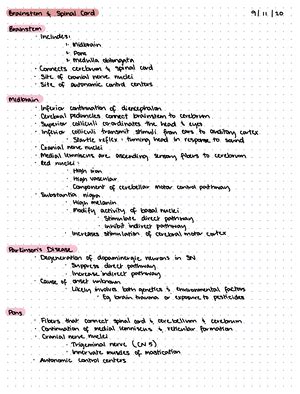 Brainstem & Spinal Cord
9/11/20
Brainstem
· Includes:
↳ Midbrain
↳ Pons
↳ Medulla oblongata
· Connects cerebrum & spinal cord
· Site of cranial nerve nuclei
· Site of autonomic control centers
Midbrain
· Inferior continuation of diencephalon
· Cerebral peduncles connect brainstem to cerebrum
· Superior colliculi coordinates the head & eyes
· Inferior colliculi transmit stimuli from ears to auditory cortex
· Startle reflex : turning head in response to sound
· Cranial nerve nuclei
· Medial lemniscus are ascending sensory fibers to cerebrum
· Red nucleus :
· High iron
· High vascular
· Component of cerebellar motor control pathway
· Substantia nigra
· High melanin
· Modify activity of basal nuclei
· Stimulate direct pathway
· Inhibit indirect pathway
· Increases stimulation of cerebral motor cortex
Parkinson's Disease
· Degeneration of dopaminergic neurons in SN
· Suppress direct pathway
· Increase indirect pathway
· Cause of onset unknown
· Likely involves both genetics & environmental factors
· Eg brain trauma or exposure to pesticides
Pons
· Fibers that connect spinal cord & cerebellum & cerebrum
· Continuation of medial lemniscus & reticular formation
· Cranial nerve nuclei
· Trigeminal nerve (CN 5)
· Innervate muscles of mastication
· Autonomic control centers